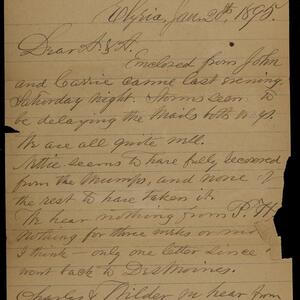 Elyria, Jan 20th, 1895.
Dear A & A.
Enclosed from John
and Carrie came last evening
Saturday night. Storms seem to
be delaying the Mails both ways.
We are all quite well.
Attie seems to have fully recovered
from the Mumps, and none of
the rest to have taken it.
We hear nothing from P. H.
Nothing for three weeks or more
I think — only one letter since
went back to DesMoines.
Charles & Wilder we hear from